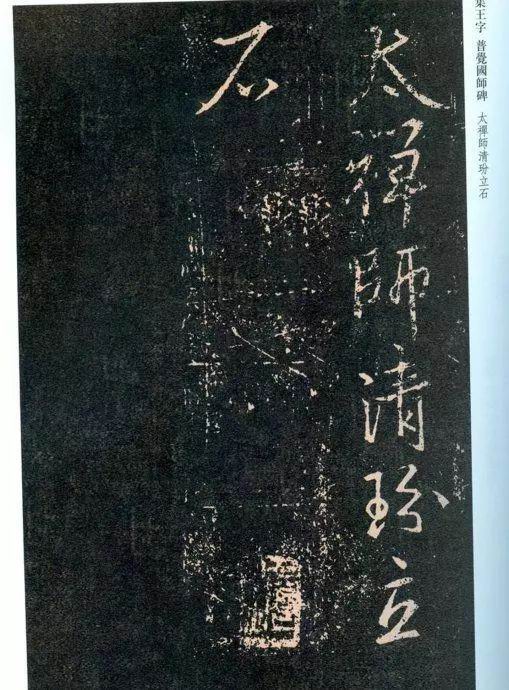 太禪師清玢立
石
集王字 普覺國師碑 太禪師清玢立石